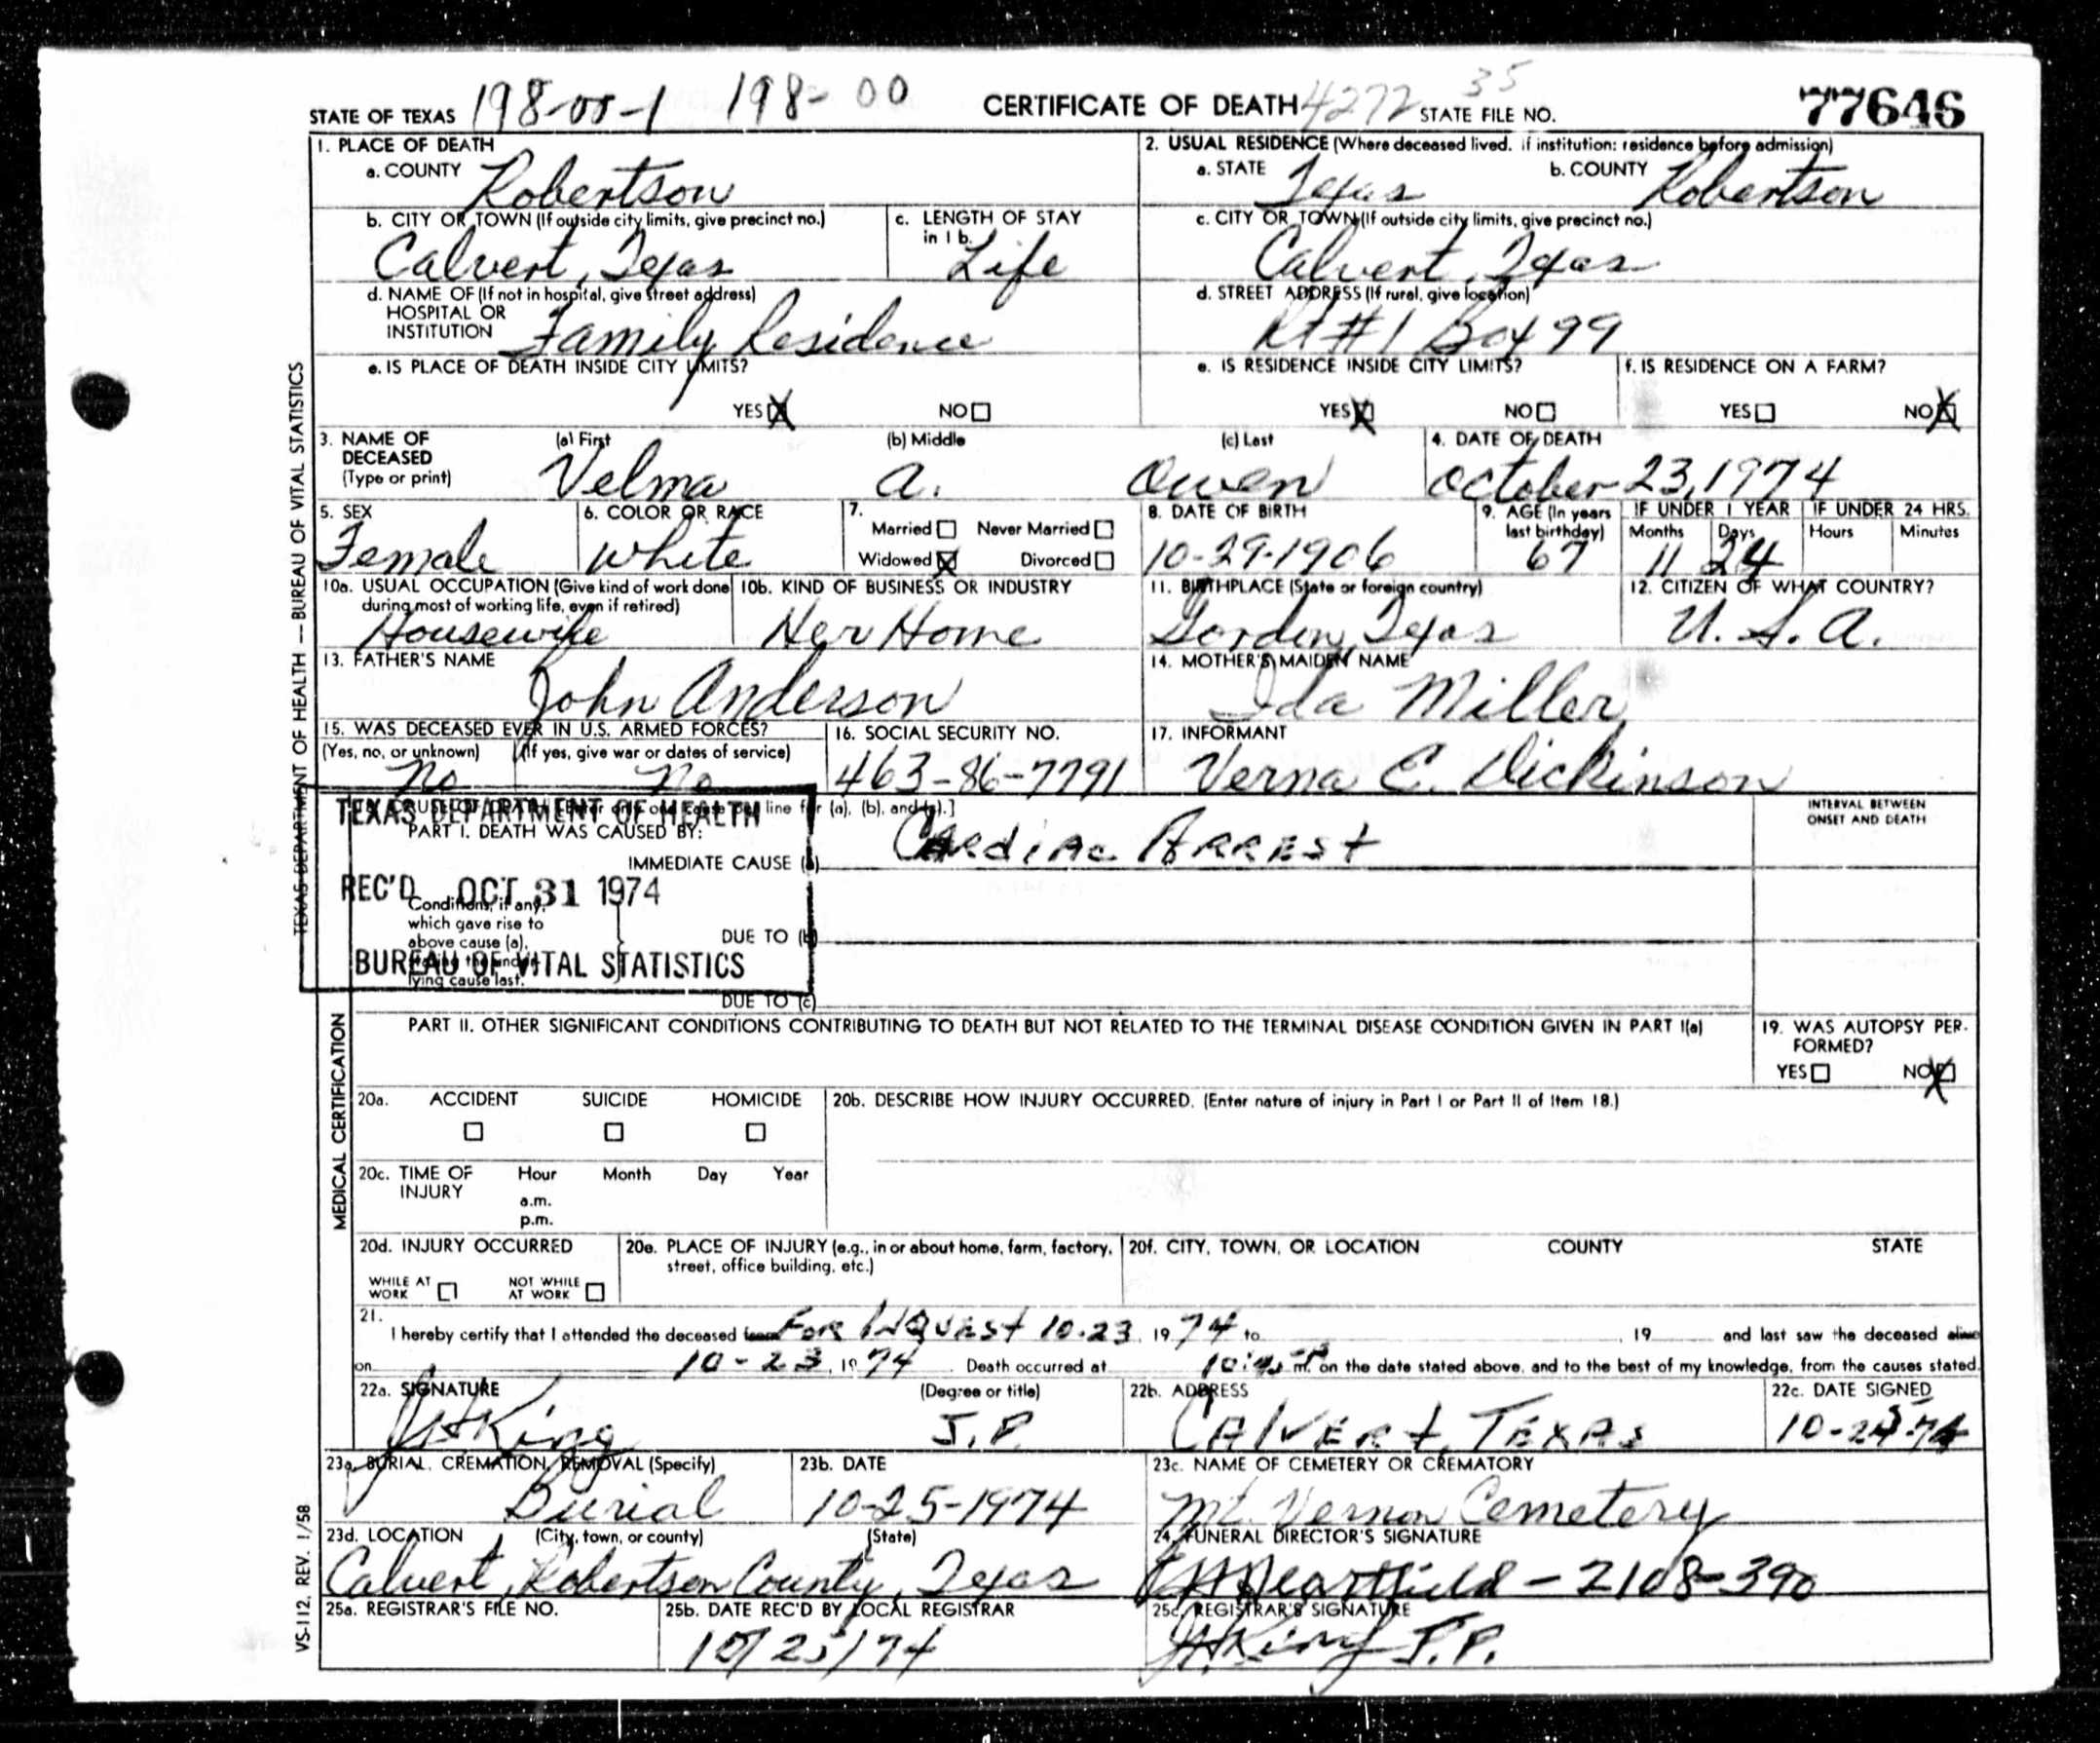 STATE OF TEXAS 198-00-1 198-00 CERTIFICATE OF DEATH 4272 35 STATE FILE NO. 77646
1. PLACE OF DEATH
a. COUNTY Robertson
2. USUAL RESIDENCE (Where deceased lived. if institution: residence before admission)
a. STATE Texas b. COUNTY Robertson
b. CITY OR TOWN (If outside city limits, give precinct no.)
Calvert, Texas
c. LENGTH OF STAY in 1 b.
Life
c. CITY OR TOWN (If outside city limits, give precinct no.)
Calvert, Texas
d. NAME OF (If not in hospital, give street address)
HOSPITAL OR
INSTITUTION Family Residence
d. STREET ADDRESS (If rural, give location)
Rt #1 Box 99
e. IS PLACE OF DEATH INSIDE CITY LIMITS?
YES X NO
e. IS RESIDENCE INSIDE CITY LIMITS?
YES X NO
f. IS RESIDENCE ON A FARM?
YES NO X
3. NAME OF DECEASED
(Type or print)
(a) First (b) Middle (c) Last
Velma A. Owen
4. DATE OF DEATH
October 23, 1974
5. SEX
Female
6. COLOR OR RACE
White
7.
Married Never Married
Widowed X Divorced
8. DATE OF BIRTH
10-29-1906
9. AGE (In years last birthday)
67
IF UNDER 1 YEAR
Months Days
11 24
IF UNDER 24 HRS.
Hours Minutes
10a. USUAL OCCUPATION (Give kind of work done during most of working life, even if retired)
Housewife
10b. KIND OF BUSINESS OR INDUSTRY
Her Home
11. BIRTHPLACE (State or foreign country)
Gordon, Texas
12. CITIZEN OF WHAT COUNTRY?
U.S.A.
13. FATHER'S NAME
John Anderson
14. MOTHER'S MAIDEN NAME
Ida Miller
15. WAS DECEASED EVER IN U.S. ARMED FORCES?
(Yes, no, or unknown) (If yes, give war or dates of service)
no no
16. SOCIAL SECURITY NO.
463-86-7791
17. INFORMANT
Verna E. Dickinson
line for (a), (b), and (c).]
PART I. DEATH WAS CAUSED BY:
IMMEDIATE CAUSE (a) CARDIAC ARREST
INTERVAL BETWEEN ONSET AND DEATH
TEXAS DEPARTMENT OF HEALTH
REC'D OCT 31 1974
BUREAU OF VITAL STATISTICS
Conditions, if any,
which gave rise to
above cause (a),
lying cause last.
DUE TO (b)
DUE TO (c)
PART II. OTHER SIGNIFICANT CONDITIONS CONTRIBUTING TO DEATH BUT NOT RELATED TO THE TERMINAL DISEASE CONDITION GIVEN IN PART I(a)
19. WAS AUTOPSY PERFORMED?
YES NO X
20a. ACCIDENT SUICIDE HOMICIDE
20b. DESCRIBE HOW INJURY OCCURRED. (Enter nature of injury in Part I or Part II of Item 18.)
20c. TIME OF INJURY
Hour Month Day Year
a.m.
p.m.
20d. INJURY OCCURRED
WHILE AT WORK NOT WHILE AT WORK
20e. PLACE OF INJURY (e.g., in or about home, farm, factory, street, office building, etc.)
20f. CITY, TOWN, OR LOCATION COUNTY STATE
21.
I hereby certify that I attended the deceased from FOR INQUEST 10-23, 1974 to , 19 and last saw the deceased alive
on 10-23, 1974. Death occurred at m. on the date stated above, and to the best of my knowledge, from the causes stated.
22a. SIGNATURE (Degree or title)
King J.P.
22b. ADDRESS
CALVERT, TEXAS
22c. DATE SIGNED
23a. BURIAL, CREMATION, REMOVAL (Specify)
Burial
23b. DATE
10-25-1974
23c. NAME OF CEMETERY OR CREMATORY
Mt. Vernon Cemetery
23d. LOCATION (City, town, or county) (State)
Calvert, Robertson County, Texas
24. FUNERAL DIRECTOR'S SIGNATURE
2108-390
25a. REGISTRAR'S FILE NO.
25b. DATE REC'D BY LOCAL REGISTRAR
10/25/74
25c. REGISTRAR'S SIGNATURE
King J.P.
TEXAS DEPARTMENT OF HEALTH — BUREAU OF VITAL STATISTICS
MEDICAL CERTIFICATION
VS-112, REV. 1/58